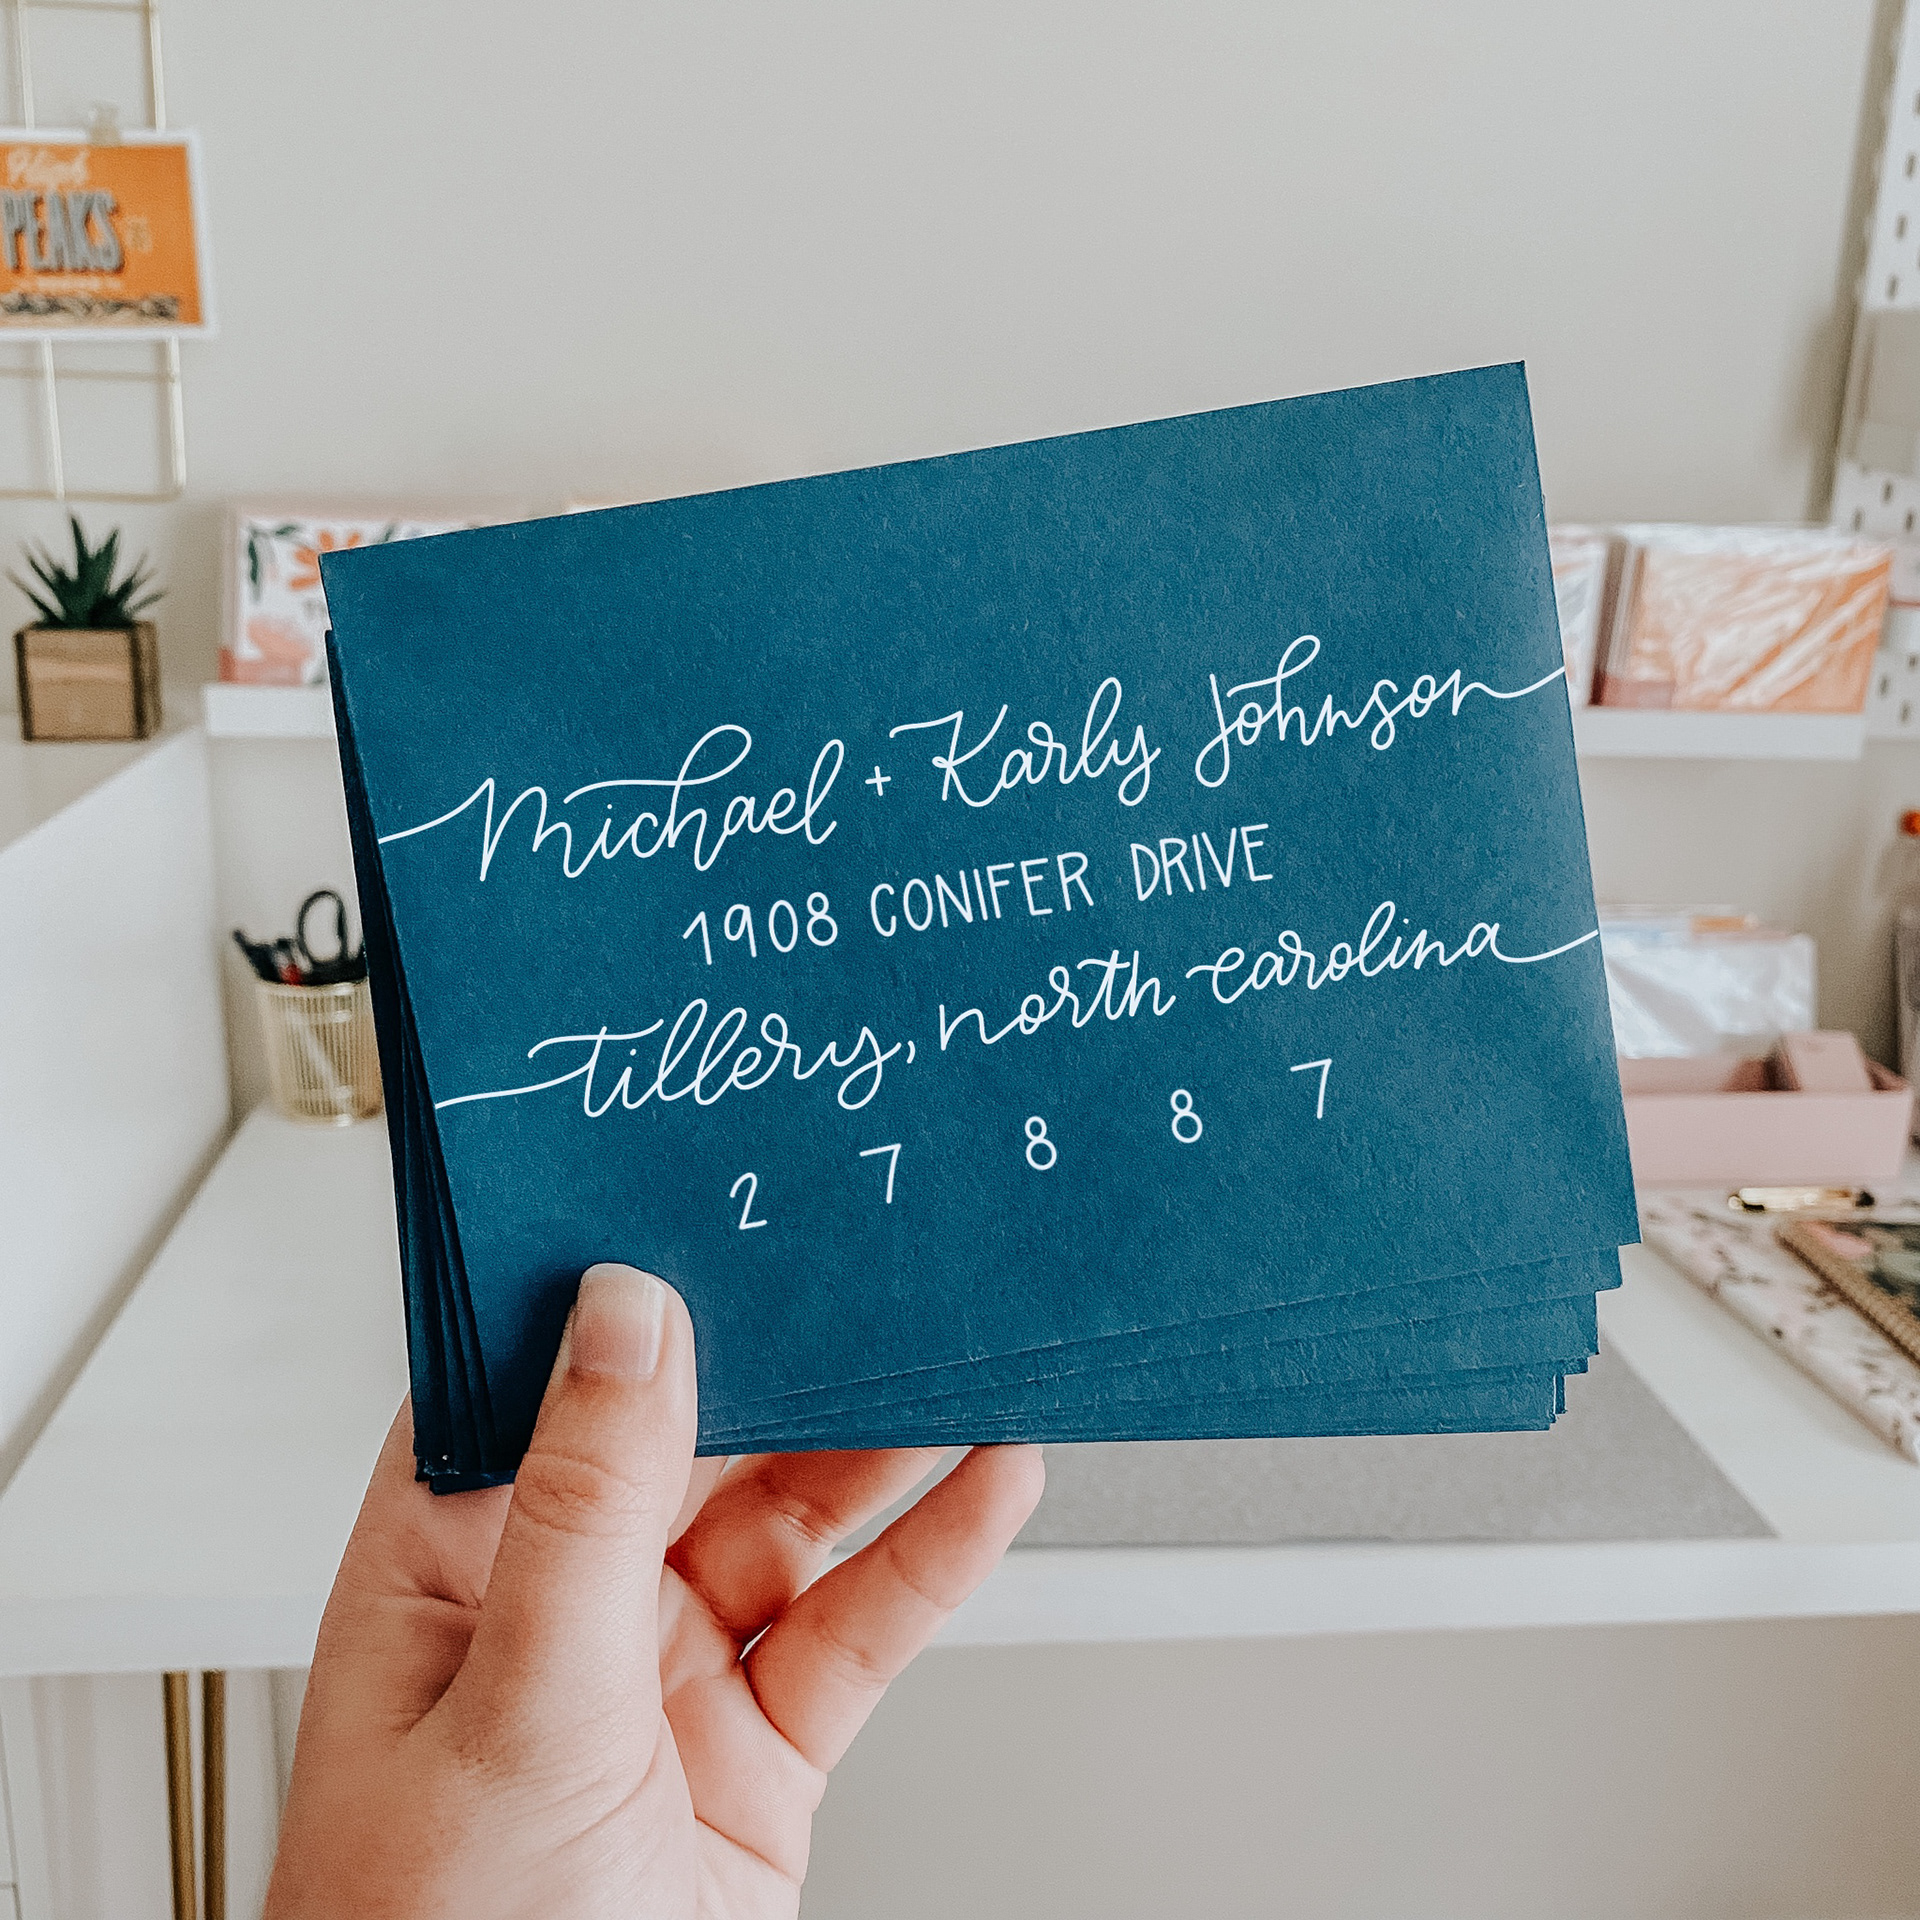 High
PEAKS
Michael + Karly Johnson
1908 CONIFER DRIVE
tillery, north carolina
2 7 8 8 7